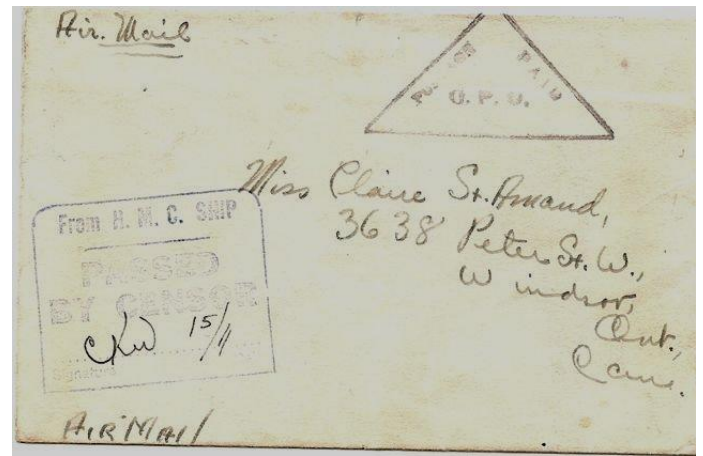 Air. Mail
POSTAGE PAID
G.P.O.
Miss Claire St. Amand,
3638 Peter St. W.,
Windsor,
Ont.,
Can.
From H. M. C. SHIP
PASSED
BY CENSOR
15/
Signature
AIR MAIL